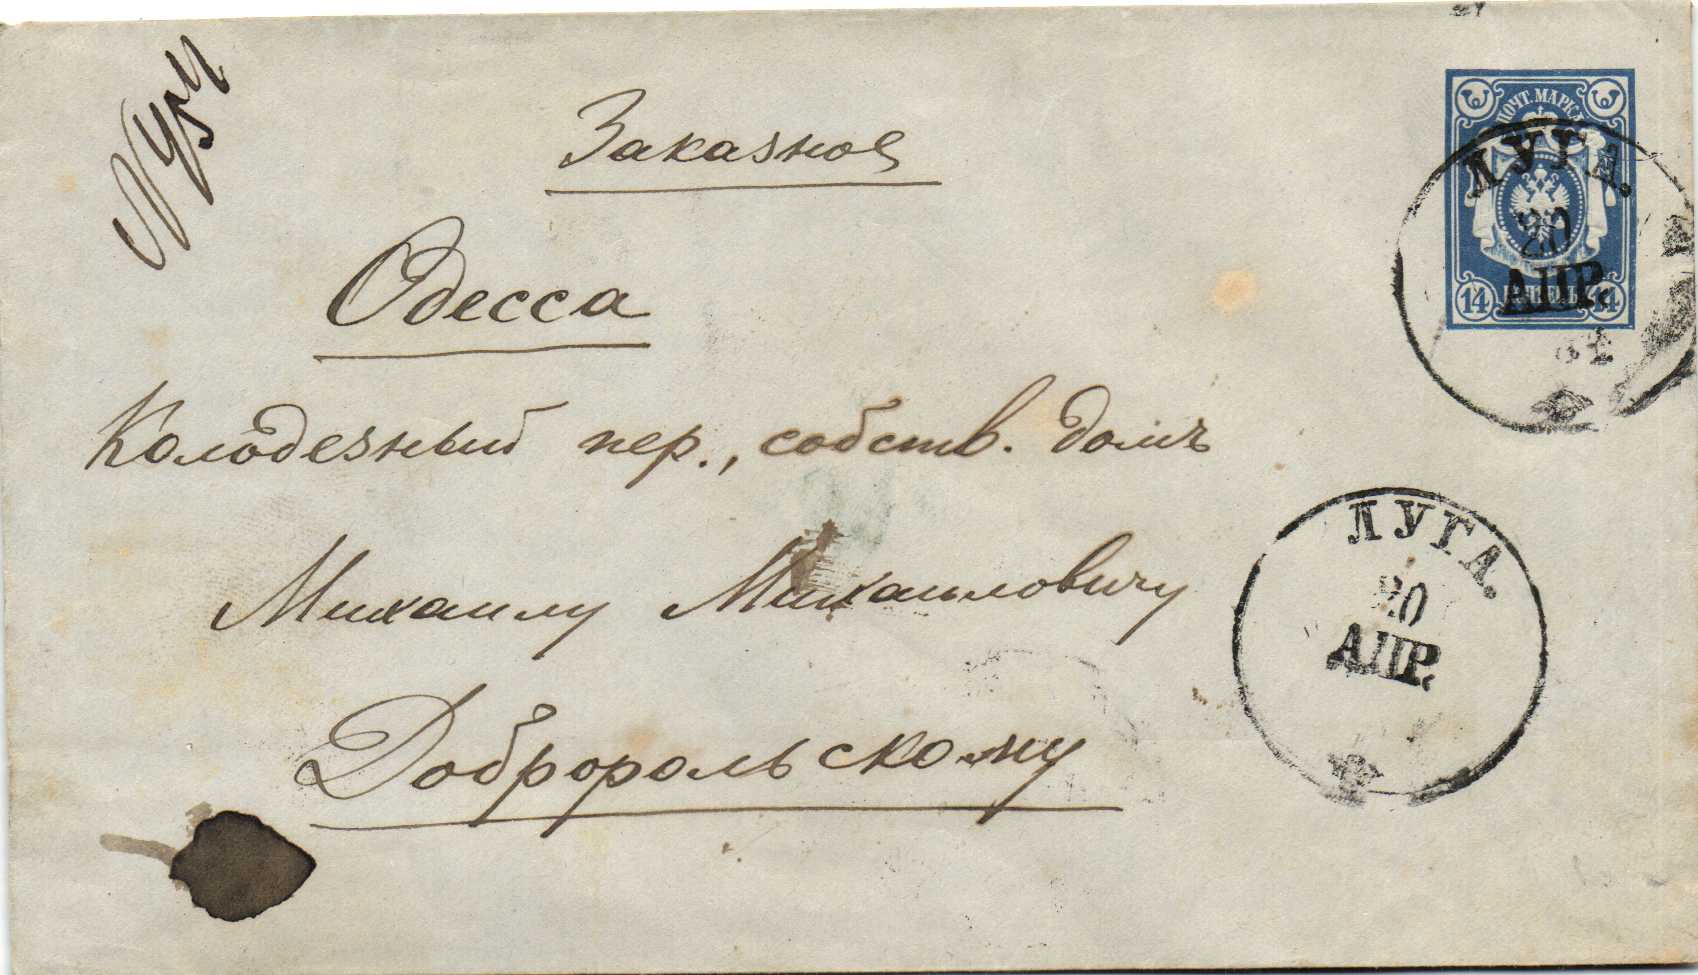 Заказное
Одесса
Колодезный пер., собств. домъ
Михаилу Михаиловичу
Добророльскому
ПОЧТ. МАРКА
14 14
ЛУГА.
20
АПР.
ЛУГА.
20
АПР.